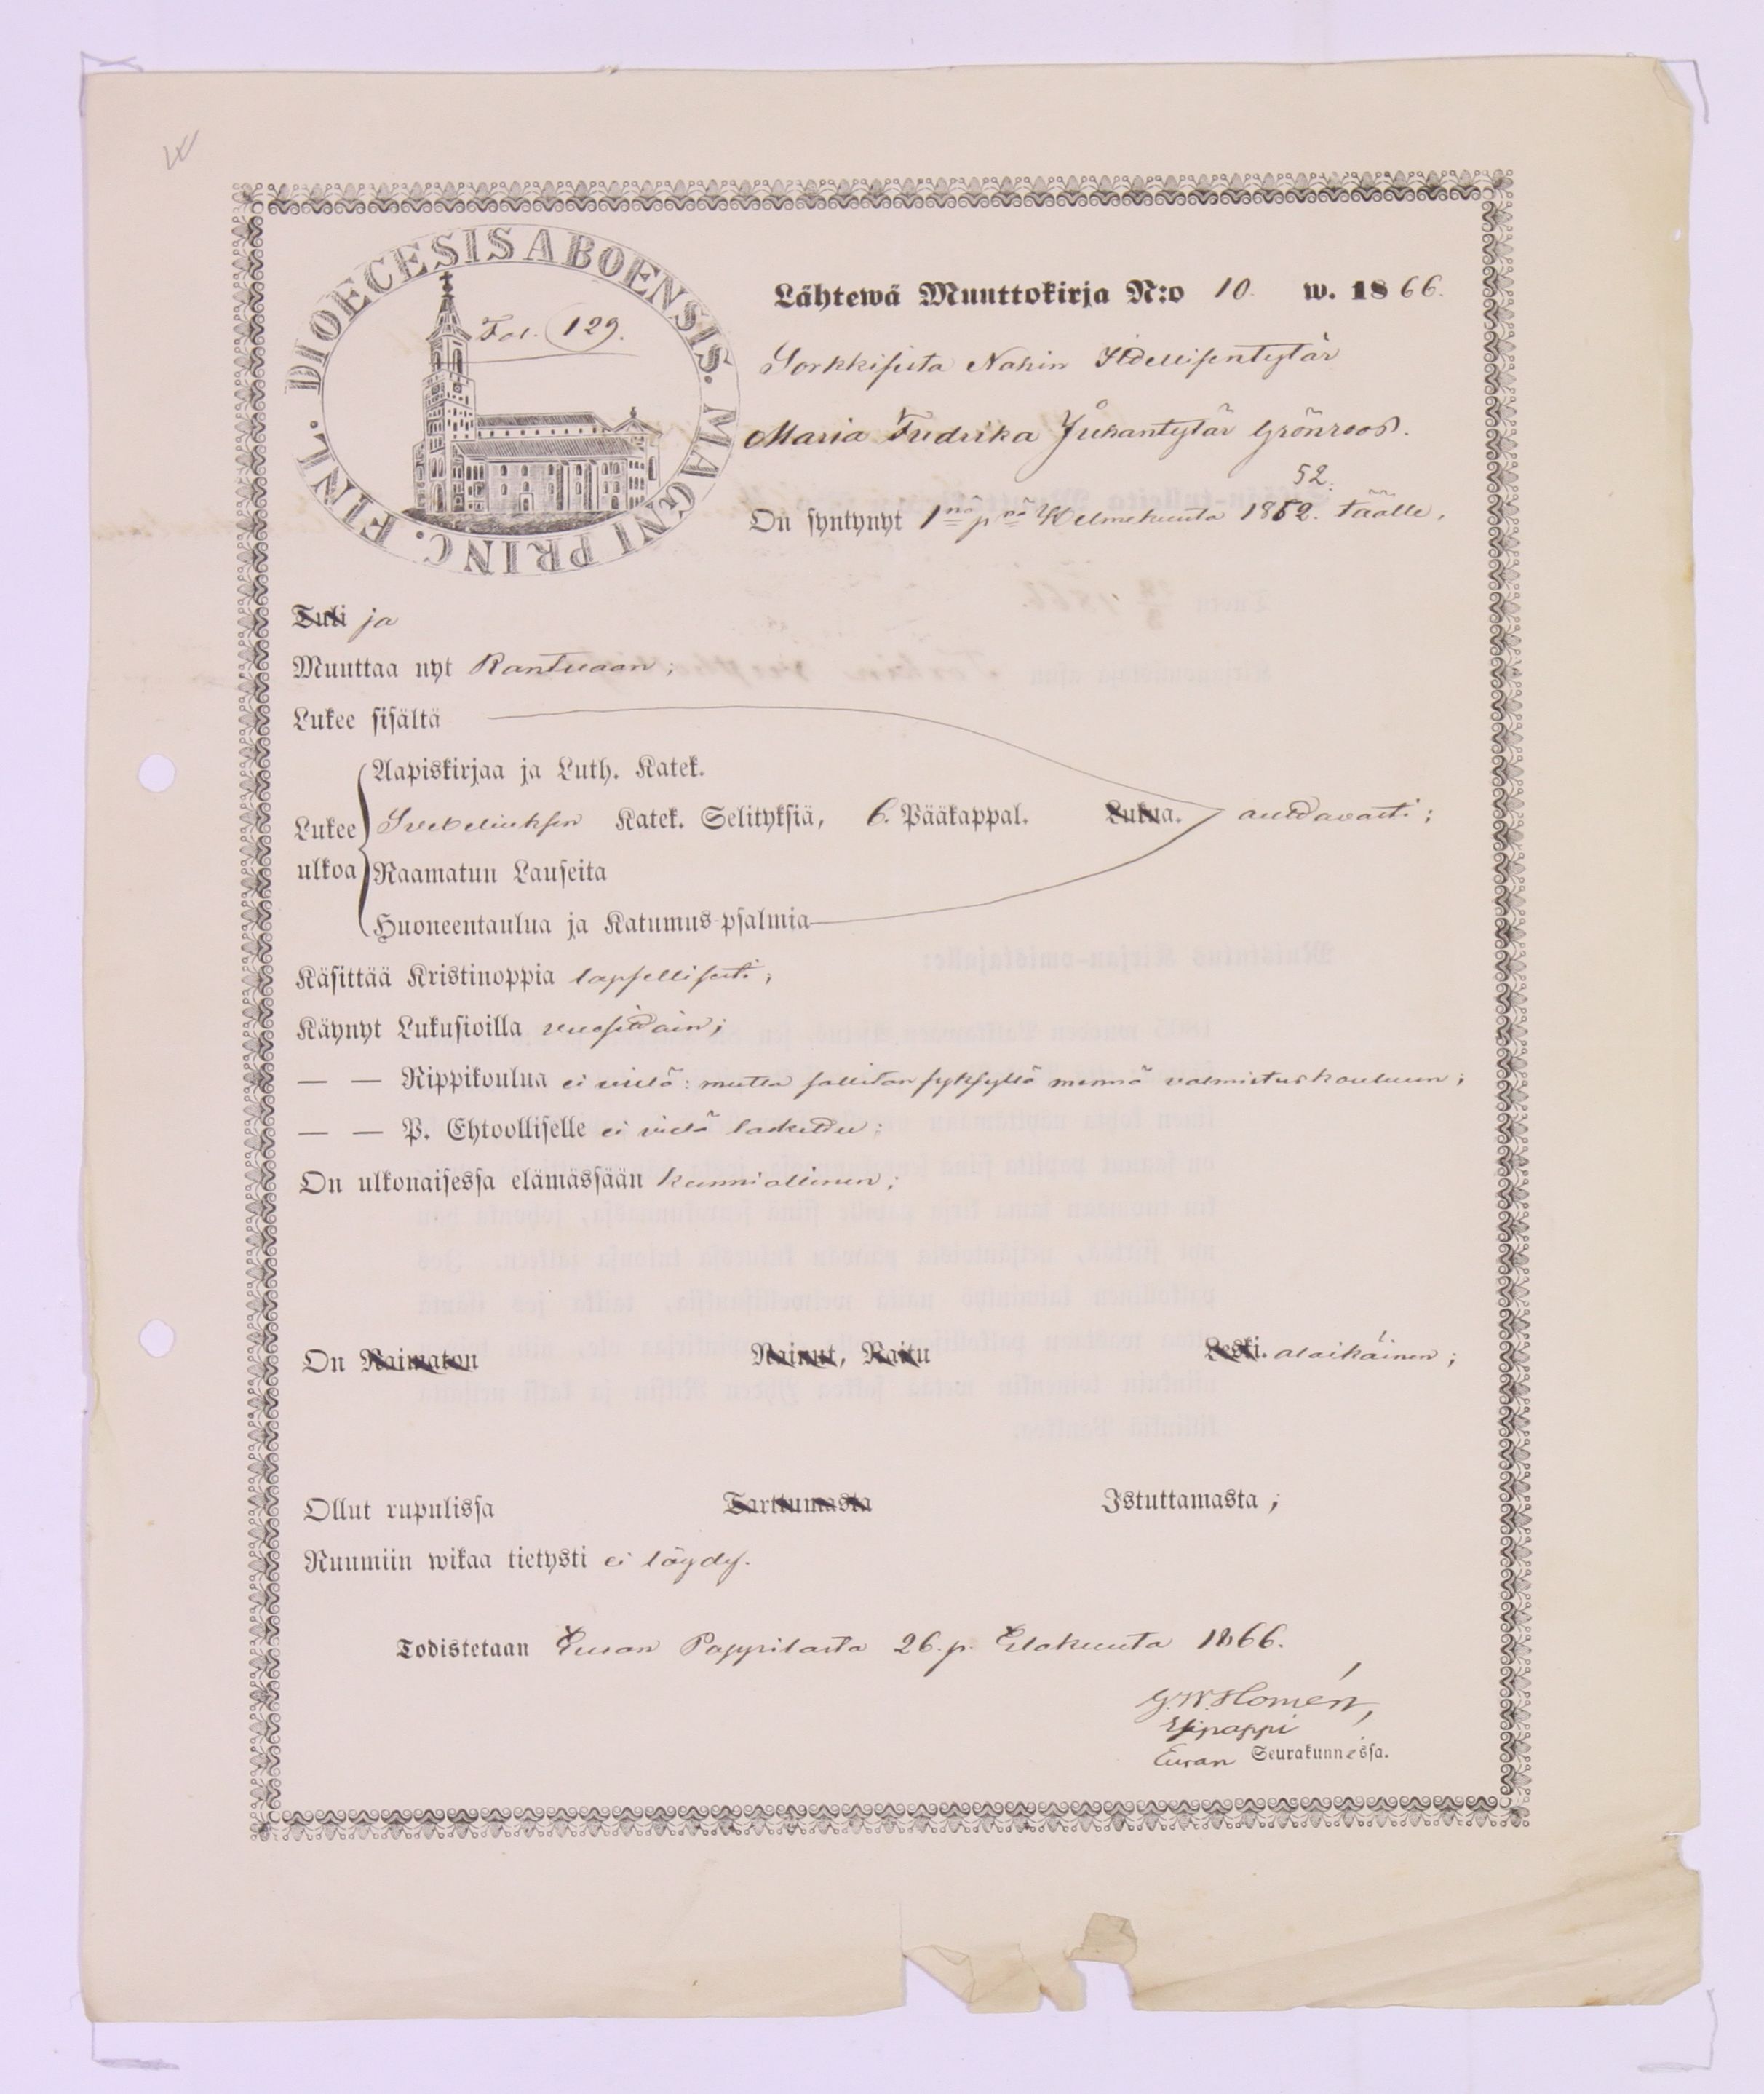 DIOECESIS ABOENSIS. MAGNI PRINC. FINL.
Fol. 129.
Lähtewä Muuttokirja N:o 10. w. 1866.
Sorkkisista Nahin Itsellisentytär
Maria Fredrika Juhantytär Grönroos.
52.
On syntynyt 1 nä p nä Helmekuuta 1852. täälle,
Tuli ja
Muuttaa nyt Kantuaan;
Lukee sisältä
Aapiskirjaa ja Luth. Katek.
Lukee Svebeliuksen Katek. Selityksiä, 6. Pääkappal. Lukua. auttavasti;
ulkoa Raamatun Lauseita
Huoneentaulua ja Katumus-psalmia
Käsittää Kristinoppia lapsellisesti;
Käynyt Lukusioilla vuosittain;
— — Rippikoulua ei vielä: mutta sallitan syksyllä mennä valmistuskouluun;
— — P. Ehtoolliselle ei vielä laskettu;
On ulkonaisessa elämässään kunniallinen;
On Naimaton Nainut, Naitu Leski. alaikäinen;
Ollut rupulissa Tarttumasta Istuttamasta;
Ruumiin wikaa tietysti ei löydy.
Todistetaan Euran Pappilasta 26. p. Elokuuta 1866.
G. W. Homén,
Esipappi
Euran Seurakunnessa.